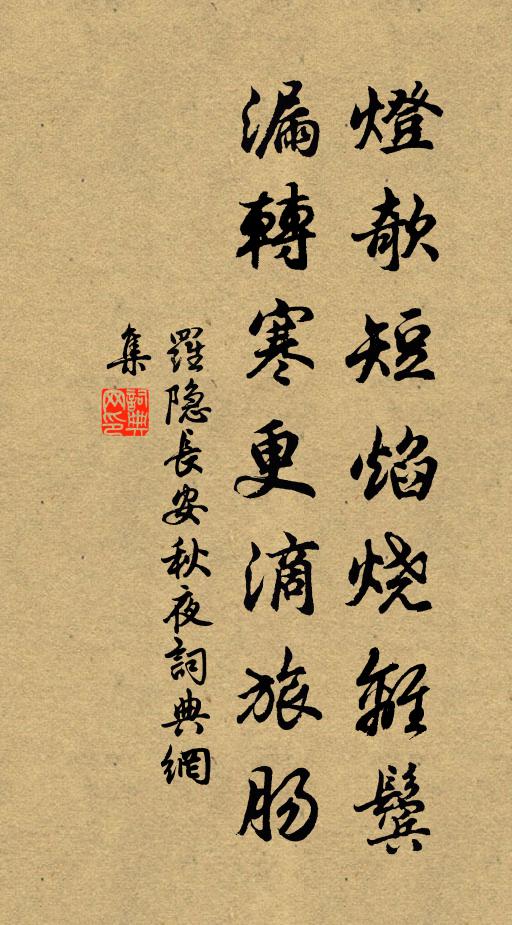 燈欹短焰燒離鬢
漏轉寒更滴旅腸
羅隐長安秋夜詞典網
集
詞典
网印